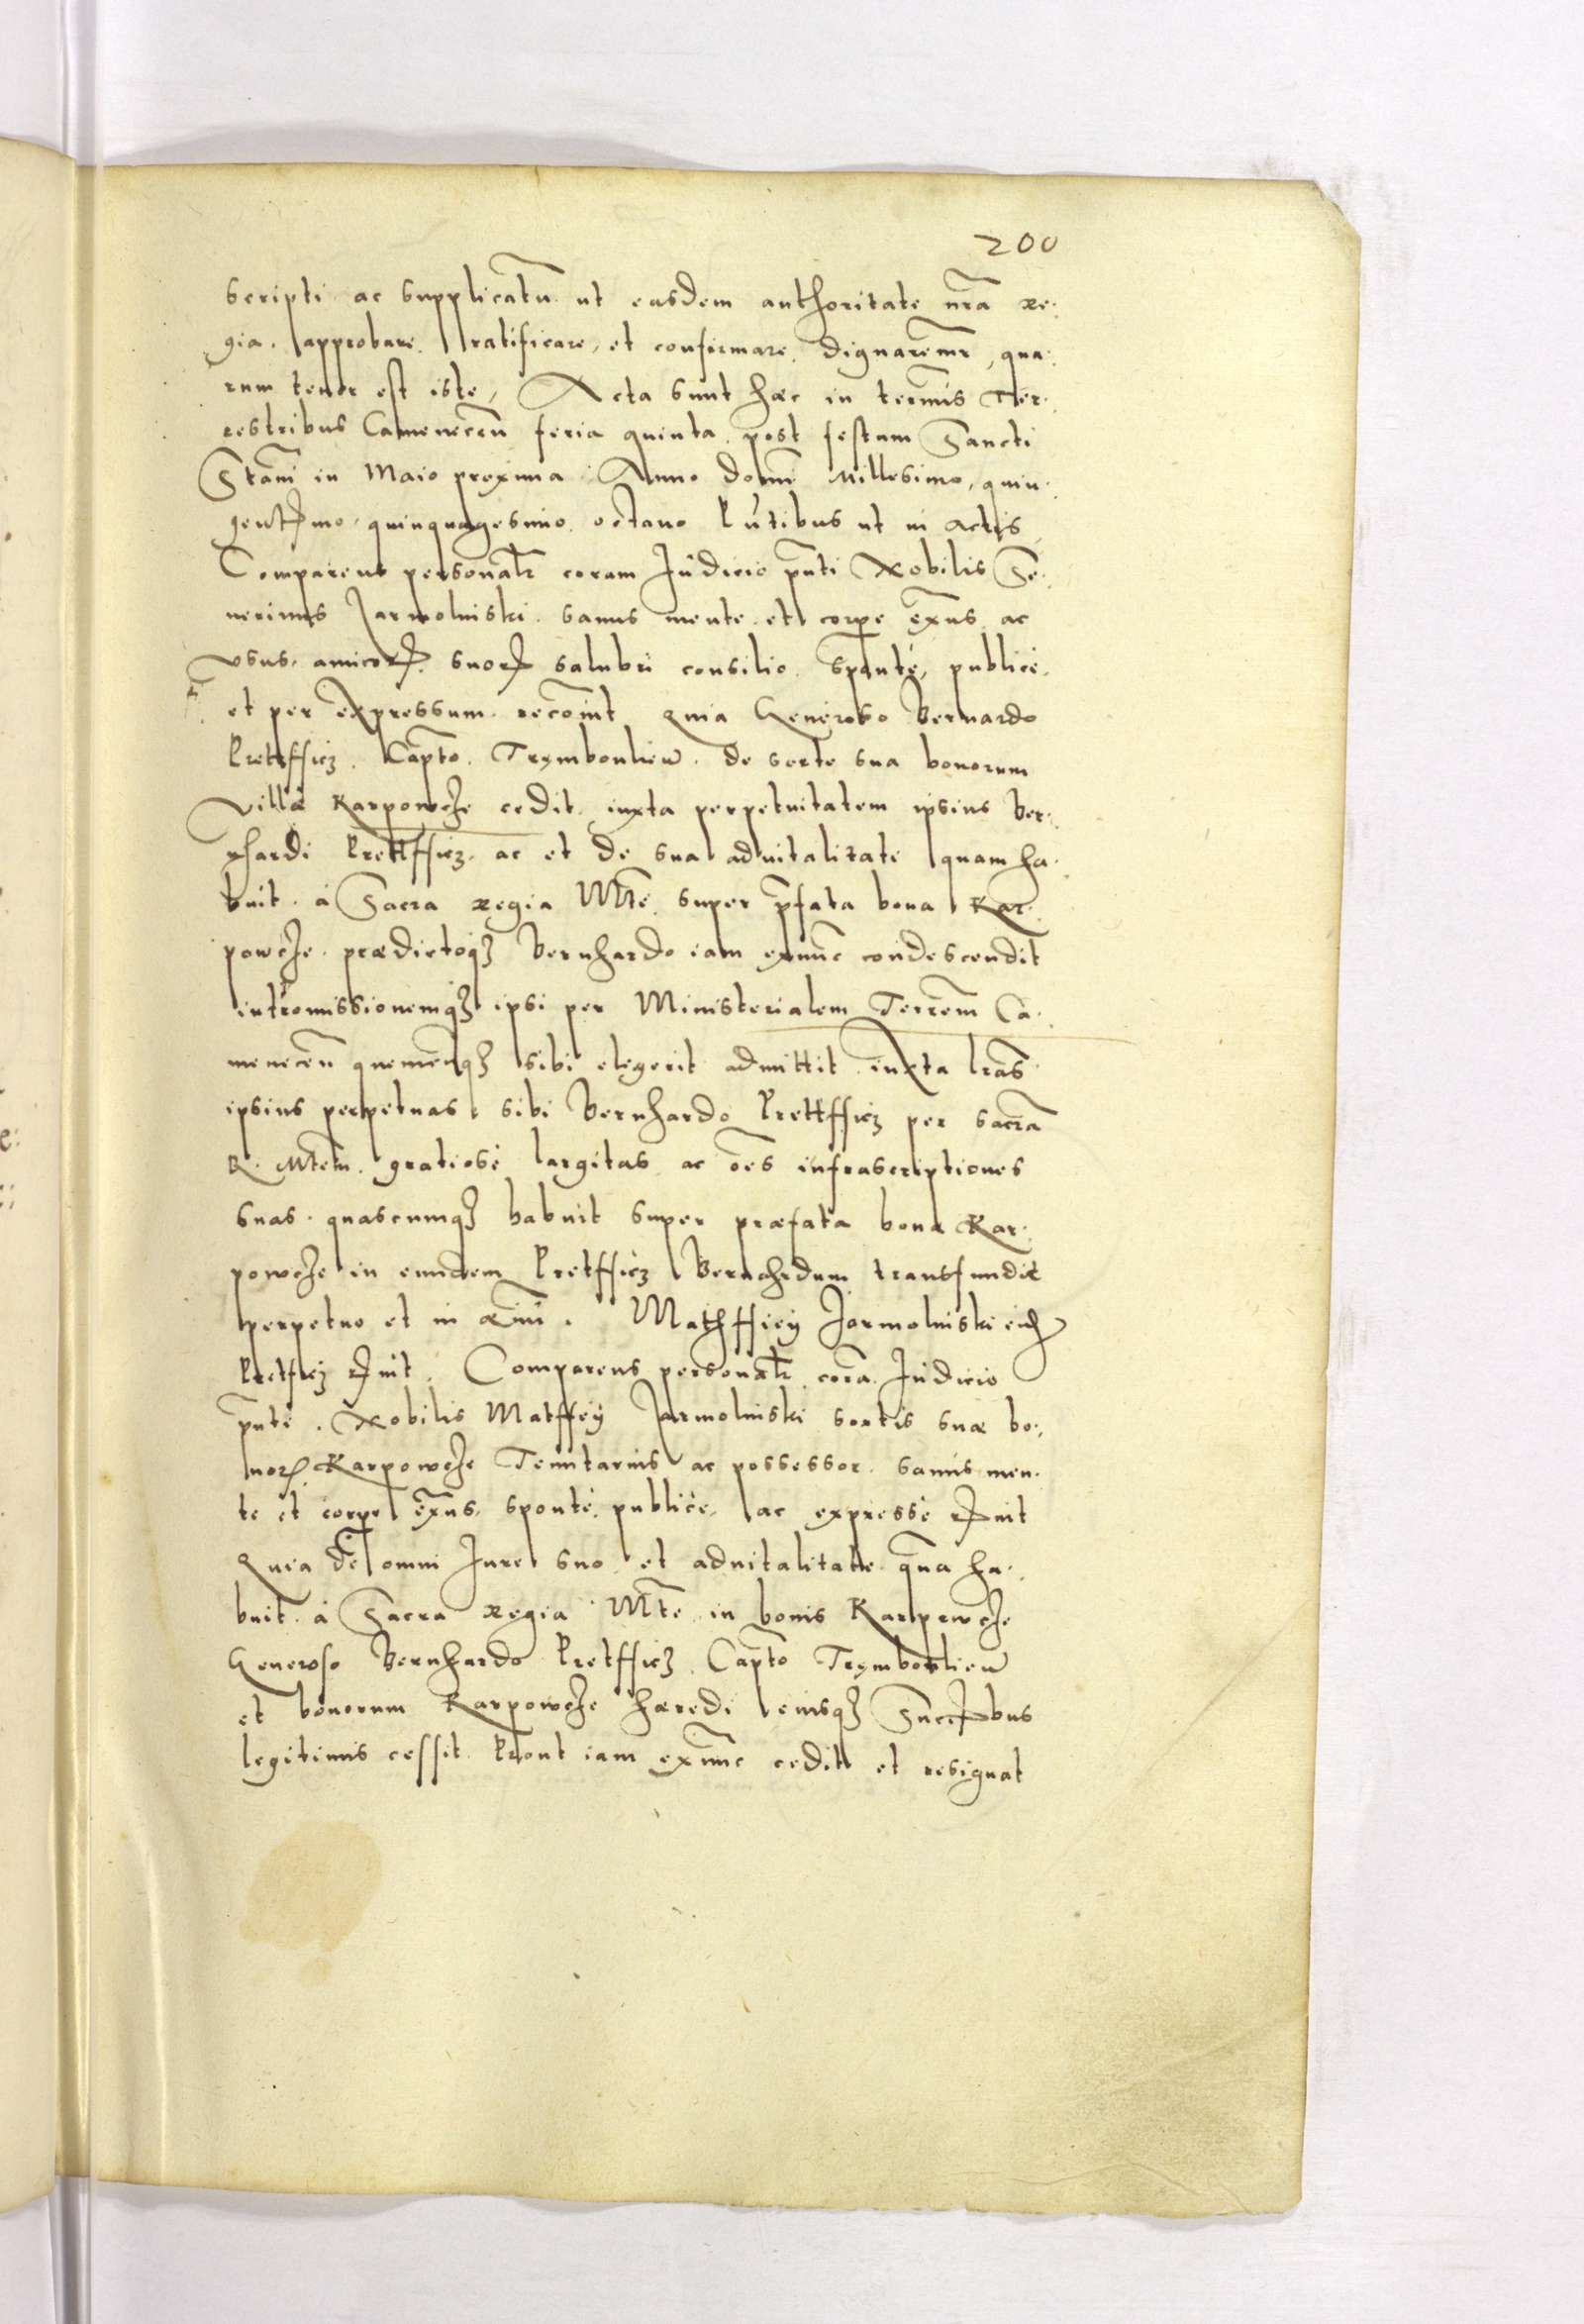 200
scripti ac supplicatũ ut easdem authoritate nr̃a re-
gia approbare ratificare, et confirmare dignaremr̃, qua-
rum tenor est iste, Acta sunt hæc in term̃is Ter-
restribus Camenecen̄ feria quinta post festum Sancti
Stanĩ in Maio proxima Anno Domĩ Millesimo, quin-
quagesimo octavo Pñtibus ut in actis
Comparens personalr̃ coram Judicio pñti Nobilis Se-
verinus Jarmolinski sanus mente et corpe exñs ac
usus, amicorꝝ suorꝝ salubri consilio sponte, publice
et per expressum recoñit Quia Generoso Bernardo
Pretfficz Capto Trymbowlien̄ de sorte sua bonorum
villæ Karpowcze cedit iuxta perpetuitatem ipsius Ber-
nhardi Prettfficz ac et de sua advitalitate quam ha-
buit à Sacra regia Mte super p̃fata bona Kar-
powcze prædictoqȝ Bernhardo iam exnunc condescendit
intromissionemqȝ ipsi per Ministerialem Terrem̃ Ca-
menecen̄ quemcũqȝ sibi elegerit admittit iuxta lr̃as
ipsius perpetuas sibi Bernhardo Prettfficz per sacrã
R. Mtem gratiose largitas ac oẽs infrascriptiones
suas quascumqȝ habuit super præfata bona Kar-
powcze in eundem Pretfficz Bernahrdum transfundit
perpetuo et in ævũ. Mathffiey Jarmolinski eidꝫ
Pretficz Rꝫnit. Comparens personalr̃ corã Judicio
pñti. Nobilis Matffey Jarmolinski sortis suæ bo-
norꝝ Karpowcze Tenutarius ac possessor sanus men-
te et corpe exñs, sponte publice, ac expresse Rꝫnit
Quia de omni Jure suo et advitalitate quã ha-
buit à Sacra regia Mte in bonis Karpowcze
Generoso Bernhardo Pretfficz Capto Trymbowlien̄
et bonorum Karpowcze hæredi eiusqȝ Succꝫbus
legitimis cessit Prout iam exnunc cedit et resignat